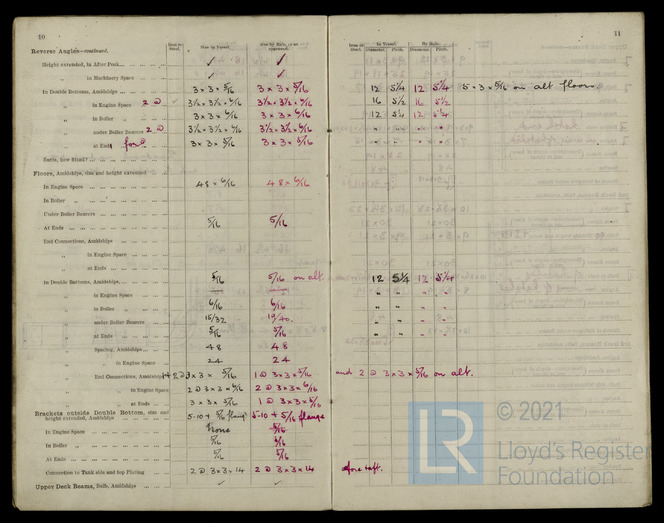 10
11
Reverse Angles—continued.
Size in Vessel.
Size by Rule, or as approved.
In Vessel.
By Rule.
Diameter. Pitch. Diameter. Pitch.
Height extended, in After Peak ✓ ✓
„ in Machinery Space ✓ ✓
In Double Bottoms, Amidships 3 × 3 × 5/16 3 × 3 × 5/16 12 5¼ 12 5¼ 5 × 3 × 5/16 on alt floors
„ in Engine Space 2 @ 3½ × 3½ × 6/16 3½ × 3½ × 6/16 16 5½ 16 5½
„ in Boiler „ 3 × 3 × 6/16 3 × 3 × 6/16 12 5¼ 12 5¼
„ under Boiler Bearers 2 @ 3½ × 3½ × 6/16 3½ × 3½ × 6/16 „ „ „ „
„ at Ends 3 × 3 × 5/16 3 × 3 × 5/16 „ „ „ „
Floors, Amidships, size and height extended
In Engine Space 48 × 6/16 48 × 6/16
In Boiler „
Under Boiler Bearers
At Ends 5/16 5/16
End Connections, Amidships
„ in Engine Space
„ at Ends
In Double Bottoms, Amidships 5/16 5/16 on alt. 12 5¼ 12 5¼
„ in Engine Space „ „ „ „
„ in Boiler „ 6/16 6/16 „ „ „ „
„ under Boiler Bearers 15/32 19/40 „ „ „ „
„ at Ends 5/16 5/16 „ „ „ „
Spacing, Amidships 48 48
„ in Engine Space 24 24
End Connections, Amidships 3 × 3 × 5/16 1 @ 3 × 3 × 5/16 and 2 @ 3 × 3 × 5/16 on alt.
„ in Engine Space 2 @ 3 × 3 × 6/16 2 @ 3 × 3 × 6/16
„ at Ends 3 × 3 × 5/16 1 @ 3 × 3 × 5/16
Brackets outside Double Bottom, size and
height extended, Amidships 5-10 + 5/16 flange 5-10 + 5/16 flange
In Engine Space None
In Boiler „ 5/16
At Ends 5/16 5/16
Connection to Tank side and top Plating 2 @ 3×3×14 2 @ 3×3×14
Upper Deck Beams, Bulb, Amidships ✓ ✓
© 2021
LR
Lloyd's Register
Foundation